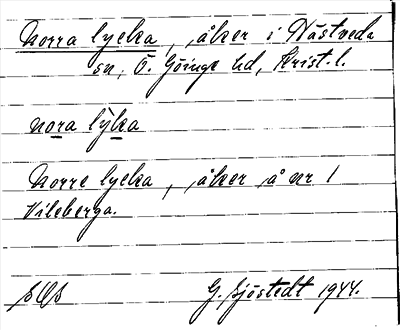 Norra lycka, åker i Nästveda
sn, Ö. Göinge hd, Krist. l.
nora lyka
Norre lycka, åker å nr 1
Vileberga.
G. Sjöstedt 1944.